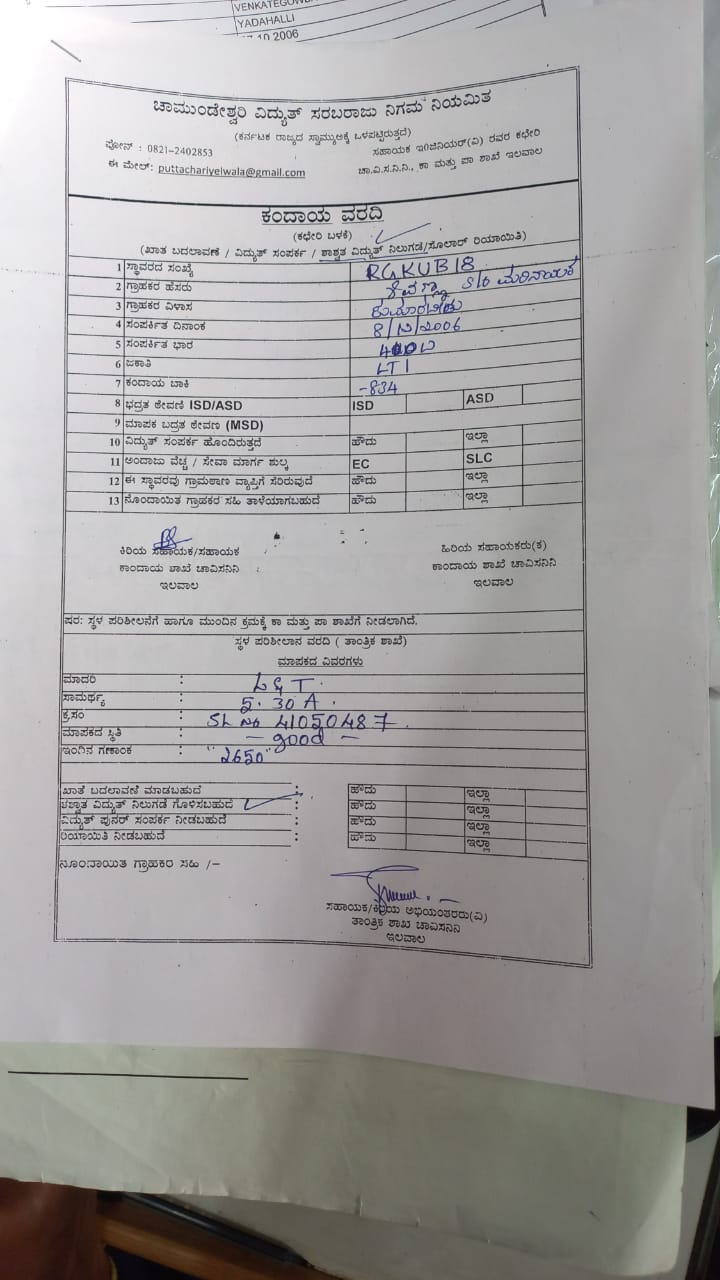 VENKATEGOWDA
YADAHALLI
10 2006
ಚಾಮುಂಡೇಶ್ವರಿ ವಿದ್ಯುತ್ ಸರಬರಾಜು ನಿಗಮ ನಿಯಮಿತ
(ಕರ್ನಾಟಕ ರಾಜ್ಯದ ಸ್ವಾಮ್ಯಕ್ಕೆ ಒಳಪಟ್ಟಿರುತ್ತದೆ)
ಫೋನ್ : 0821-2402853 ಸಹಾಯಕ ಇಂಜಿನಿಯರ್(ವಿ) ರವರ ಕಛೇರಿ
ಈ ಮೇಲ್: puttachariyelwala@gmail.com ಚಾ.ವಿ.ಸ.ನಿ.ನಿ., ಕಾ ಮತ್ತು ಪಾ ಶಾಖೆ ಇಲವಾಲ
ಕಂದಾಯ ವರದಿ
(ಕಛೇರಿ ಬಳಕೆ)
(ಖಾತ ಬದಲಾವಣೆ / ವಿದ್ಯುತ್ ಸಂಪರ್ಕ / ಶಾಶ್ವತ ವಿದ್ಯುತ್ ನಿಲುಗಡೆ/ಸೋಲಾರ್ ರಿಯಾಯಿತಿ)
1 ಸ್ಥಾವರದ ಸಂಖ್ಯೆ RGKUB18
2 ಗ್ರಾಹಕರ ಹೆಸರು S/o ಮರಿನಾಯಕ
3 ಗ್ರಾಹಕರ ವಿಳಾಸ ಕುಮಾರಬೀಡು
4 ಸಂಪರ್ಕಿತ ದಿನಾಂಕ 8/12/2006
5 ಸಂಪರ್ಕಿತ ಭಾರ
6 ಜಕಾತಿ LT1
7 ಕಂದಾಯ ಬಾಕಿ -834
8 ಭದ್ರತ ಠೇವಣಿ ISD/ASD ISD ASD
9 ಮಾಪಕ ಬದ್ರತ ಠೇವಣ (MSD)
10 ವಿದ್ಯುತ್ ಸಂಪರ್ಕ ಹೊಂದಿರುತ್ತದೆ ಹೌದು ಇಲ್ಲಾ
11 ಅಂದಾಜು ವೆಚ್ಚ / ಸೇವಾ ಮಾರ್ಗ ಶುಲ್ಕ EC SLC
12 ಈ ಸ್ಥಾವರವು ಗ್ರಾಮಠಾಣ ವ್ಯಾಪ್ತಿಗೆ ಸೇರಿರುವುದೆ ಹೌದು ಇಲ್ಲಾ
13 ನೊಂದಾಯಿತ ಗ್ರಾಹಕರ ಸಹಿ ತಾಳೆಯಾಗಬಹುದೆ ಹೌದು ಇಲ್ಲಾ
ಕಿರಿಯ ಸಹಾಯಕ/ಸಹಾಯಕ ಹಿರಿಯ ಸಹಾಯಕರು(ಕ)
ಕಾಂದಾಯ ಶಾಖೆ ಚಾವಿಸನಿನಿ ಕಾಂದಾಯ ಶಾಖೆ ಚಾವಿಸನಿನಿ
ಇಲವಾಲ ಇಲವಾಲ
ಷರ: ಸ್ಥಳ ಪರಿಶೀಲನೆಗೆ ಹಾಗೂ ಮುಂದಿನ ಕ್ರಮಕ್ಕೆ ಕಾ ಮತ್ತು ಪಾ ಶಾಖೆಗೆ ನೀಡಲಾಗಿದೆ.
ಸ್ಥಳ ಪರಿಶೀಲಾನ ವರದಿ ( ತಾಂತ್ರಿಕ ಶಾಖೆ)
ಮಾಪಕದ ವಿವರಗಳು
ಮಾದರಿ : L&T.
ಸಾಮರ್ಥ್ಯ : 5. 30 A.
ಕ್ರ.ಸಂ : SL No 41050487.
ಮಾಪಕದ ಸ್ಥಿತಿ : - good -
ಇಂದಿನ ಗಣಾಂಕ : "2650"
ಖಾತೆ ಬದಲಾವಣೆ ಮಾಡಬಹುದೆ : ಹೌದು ಇಲ್ಲಾ
ಶಶ್ವಾತ ವಿದ್ಯುತ್ ನಿಲುಗಡೆ ಗೊಳಿಸಬಹುದೆ : ಹೌದು ಇಲ್ಲಾ
ವಿದ್ಯುತ್ ಪುನರ್ ಸಂಪರ್ಕ ನೀಡಬಹುದೆ : ಹೌದು ಇಲ್ಲಾ
ರಿಯಾಯಿತಿ ನೀಡಬಹುದೆ : ಹೌದು ಇಲ್ಲಾ
ನೂಂದಾಯಿತ ಗ್ರಾಹಕರ ಸಹಿ /-
ಸಹಾಯಕ/ಕಿರಿಯ ಅಭಿಯಂತರರು(ವಿ)
ತಾಂತ್ರಿಕ ಶಾಖೆ ಚಾವಿಸನಿನಿ
ಇಲವಾಲ